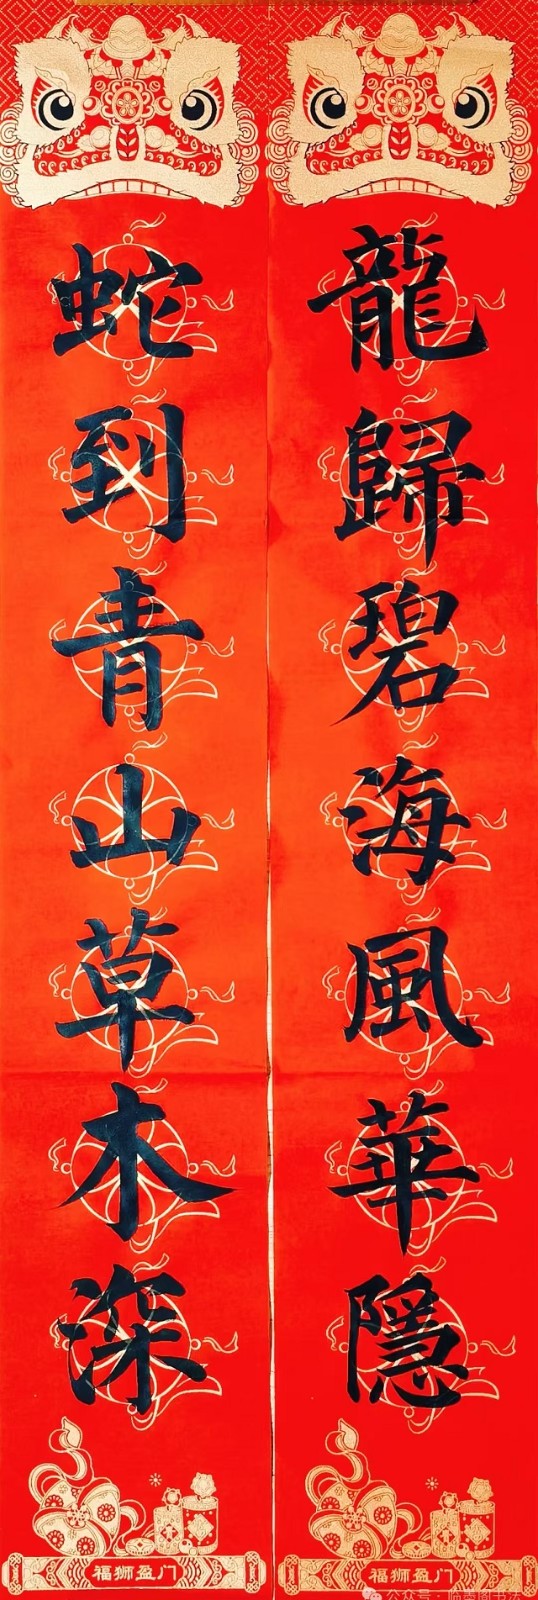 龍歸碧海風華隱
蛇到青山草木深
福狮盈门
福狮盈门
公众号·临青阁书法